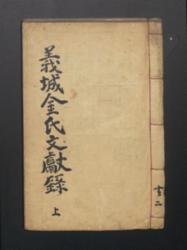 義城金氏文獻錄
上